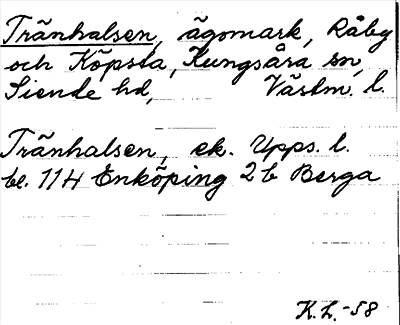 Tränhalsen, ägomark, Råby
och Köpsta, Kungsåra sn,
Siende hd, Västm. l.
Tränhalsen, ek. Upps. l.
bl. 114 Enköping 2b Berga
K.L.-58